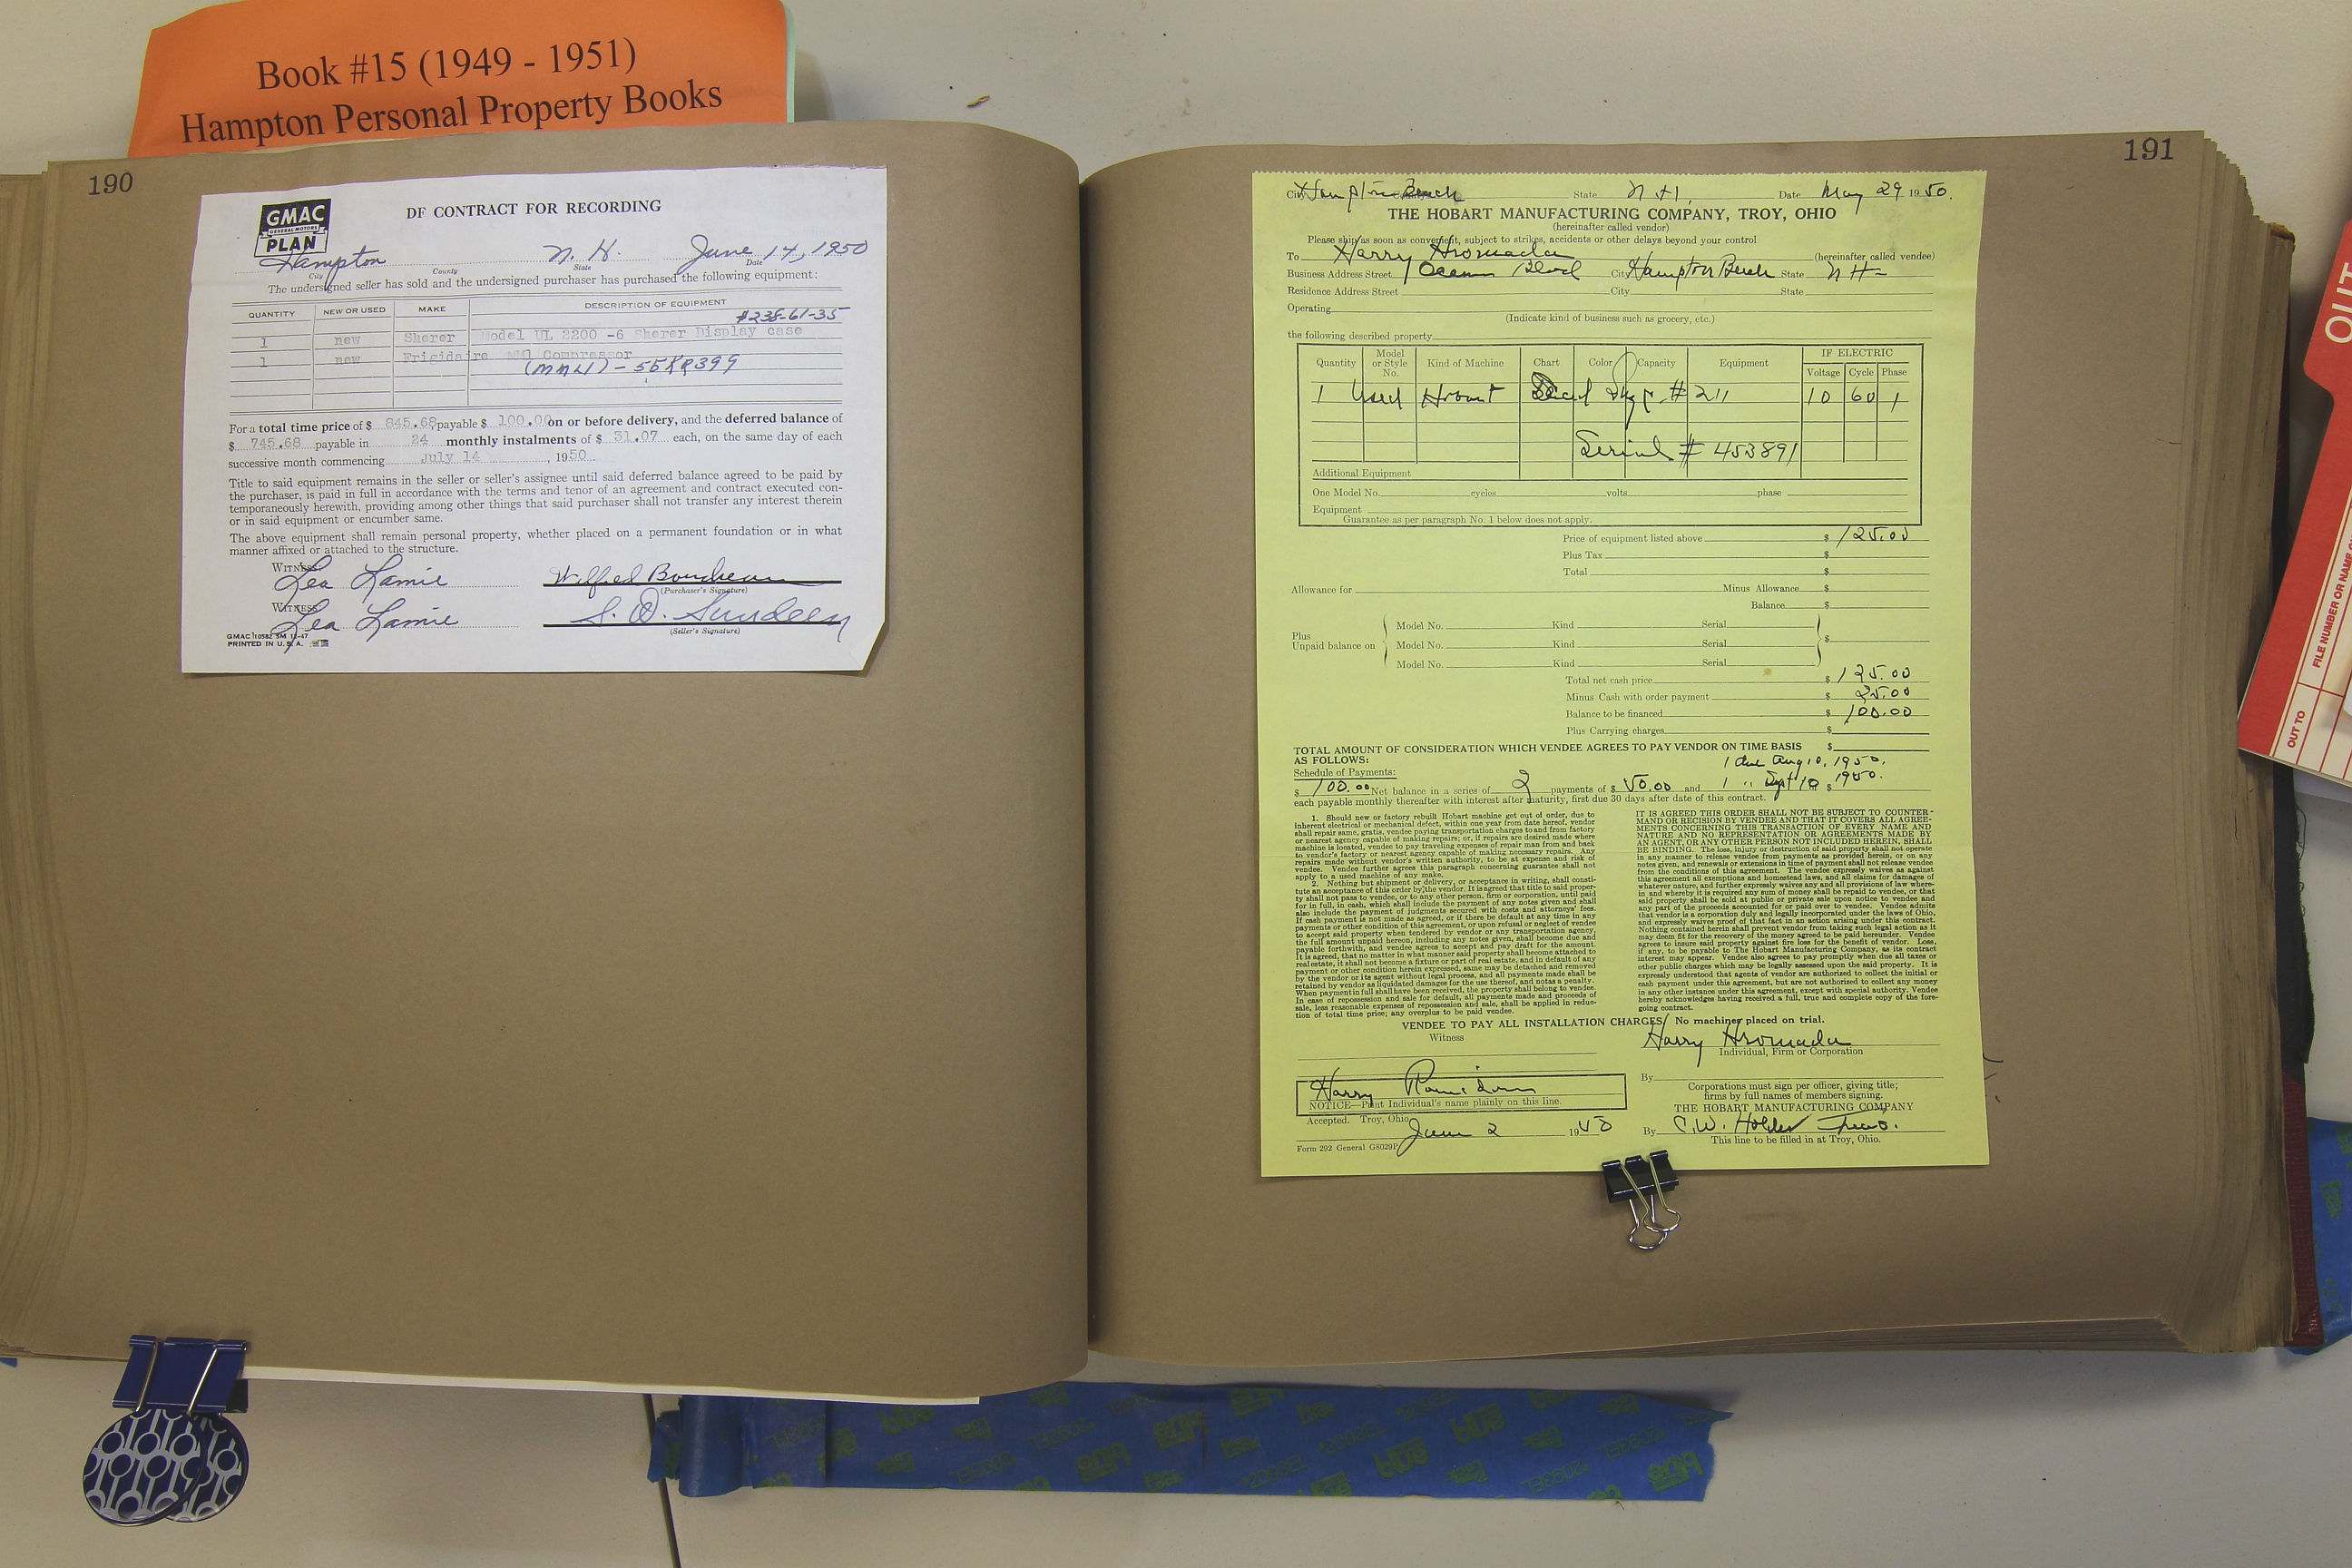 Book #15 (1949 - 1951)
Hampton Personal Property Books
190
GMAC
GENERAL MOTORS
PLAN
DF CONTRACT FOR RECORDING
Hampton N. H. June 14, 1950
City County State Date
The undersigned seller has sold and the undersigned purchaser has purchased the following equipment:
QUANTITY NEW OR USED MAKE DESCRIPTION OF EQUIPMENT
#238-61-35
1 new Sherer Model UL 2200 -6 Sherer Display case
1 new Frigidaire MM1 Compressor
For a total time price of $ 845.68 payable $ 100.00 on or before delivery, and the deferred balance of
$ 745.68 payable in 24 monthly instalments of $ 31.07 each, on the same day of each
successive month commencing July 14, 1950.
Title to said equipment remains in the seller or seller's assignee until said deferred balance agreed to be paid by
the purchaser, is paid in full in accordance with the terms and tenor of an agreement and contract executed con-
temporaneously herewith, providing among other things that said purchaser shall not transfer any interest therein
or in said equipment or encumber same.
The above equipment shall remain personal property, whether placed on a permanent foundation or in what
manner affixed or attached to the structure.
WITNESS:
Lea Lamie Wilfred Boudreau
(Purchaser's Signature)
WITNESS:
Lea Lamie S. O. Sundeen
(Seller's Signature)
GMAC 10582 5M 12-47
PRINTED IN U. S. A.
191
City Hampton Beach State N H, Date May 29 1950.
THE HOBART MANUFACTURING COMPANY, TROY, OHIO
(hereinafter called vendor)
Please ship as soon as convenient, subject to strikes, accidents or other delays beyond your control
To Harry Hromada (hereinafter called vendee)
Business Address Street Ocean Blvd City Hampton Beach State N H
Residence Address Street City State
Operating
(Indicate kind of business such as grocery, etc.)
the following described property
Quantity Model or Style No. Kind of Machine Chart Color Capacity Equipment IF ELECTRIC
Voltage Cycle Phase
1 Used # 211 10 60 1
Serial # 453891
Additional Equipment
One Model No. cycles volts phase
Equipment
Guarantee as per paragraph No. 1 below does not apply.
Price of equipment listed above $ 125.00
Plus Tax $
Total $
Allowance for Minus Allowance $
Balance $
Plus
Unpaid balance on
Model No. Kind Serial
Model No. Kind Serial $
Model No. Kind Serial
Total net cash price $ 125.00
Minus Cash with order payment $ 25.00
Balance to be financed $ 100.00
Plus Carrying charges $
TOTAL AMOUNT OF CONSIDERATION WHICH VENDEE AGREES TO PAY VENDOR ON TIME BASIS $
AS FOLLOWS:
1 due Aug 10, 1950.
Schedule of Payments: 1 " Sept 10 1950.
$ 100.00 Net balance in a series of 2 payments of $ 50.00 and $
each payable monthly thereafter with interest after maturity, first due 30 days after date of this contract.
1. Should new or factory rebuilt Hobart machine get out of order, due to
inherent electrical or mechanical defect, within one year from date hereof, vendor
shall repair same, gratis, vendee paying transportation charges to and from factory
or nearest agency capable of making repairs; or, if repairs are desired made where
machine is located, vendee to pay traveling expenses of repair man from and back
to vendor's factory or nearest agency capable of making necessary repairs. Any
repairs made without vendor's written authority, to be at expense and risk of
vendee. Vendee further agrees this paragraph concerning guarantee shall not
apply to a used machine of any make.
2. Nothing but shipment or delivery, or acceptance in writing, shall consti-
tute an acceptance of this order by the vendor. It is agreed that title to said proper-
ty shall not pass to vendee, or to any other person, firm or corporation, until paid
for in full, in cash, which shall include the payment of any notes given and shall
also include the payment of judgments secured with costs and attorneys' fees.
If cash payment is not made as agreed, or if there be default at any time in any
payments or other condition of this agreement, or upon refusal or neglect of vendee
to accept said property when tendered by vendor or any transportation agency,
the full amount unpaid hereon, including any notes given, shall become due and
payable forthwith, and vendee agrees to accept and pay draft for the amount.
It is agreed, that no matter in what manner said property shall become attached to
real estate, it shall not become a fixture or part of real estate, and in default of any
payment or other condition herein expressed, same may be detached and removed
by the vendor or its agent without legal process, and all payments made shall be
retained by vendor as liquidated damages for the use thereof, and not as a penalty.
When payment in full shall have been received, the property shall belong to vendee.
In case of repossession and sale for default, all payments made and proceeds of
sale, less reasonable expenses of repossession and sale, shall be applied in reduc-
tion of total time price; any overplus to be paid vendee.
IT IS AGREED THIS ORDER SHALL NOT BE SUBJECT TO COUNTER-
MAND OR RECISION BY VENDEE AND THAT IT COVERS ALL AGREE-
MENTS CONCERNING THIS TRANSACTION OF EVERY NAME AND
NATURE AND NO REPRESENTATION OR AGREEMENTS MADE BY
AN AGENT, OR ANY OTHER PERSON NOT INCLUDED HEREIN, SHALL
BE BINDING. The loss, injury or destruction of said property shall not operate
in any manner to release vendee from payments as provided herein, or on any
notes given, and renewals or extensions in time of payment shall not release vendee
from the conditions of this agreement. The vendee expressly waives as against
this agreement all exemptions and homestead laws, and all claims for damages of
whatever nature, and further expressly waives any and all provisions of law where-
in and whereby it is required any sum of money shall be repaid to vendee, or that
said property shall be sold at public or private sale upon notice to vendee and
any part of the proceeds accounted for or paid over to vendee. Vendee admits
that vendor is a corporation duly and legally incorporated under the laws of Ohio,
and expressly waives proof of that fact in an action arising under this contract.
Nothing contained herein shall prevent vendor from taking such legal action as it
may deem fit for the recovery of the money agreed to be paid hereunder. Vendee
agrees to insure said property against fire loss for the benefit of vendor. Loss,
if any, to be payable to The Hobart Manufacturing Company, as its contract
interest may appear. Vendee also agrees to pay promptly when due all taxes or
other public charges which may be legally assessed upon the said property. It is
expressly understood that agents of vendor are authorized to collect the initial or
cash payment under this agreement, but are not authorized to collect any money
in any other instance under this agreement, except with special authority. Vendee
hereby acknowledges having received a full, true and complete copy of the fore-
going contract.
VENDEE TO PAY ALL INSTALLATION CHARGES/ No machines placed on trial.
Witness
Harry Hromada
Individual, Firm or Corporation
By
Harry
NOTICE—Print Individual's name plainly on this line.
Corporations must sign per officer, giving title;
firms by full names of members signing.
THE HOBART MANUFACTURING COMPANY
Accepted. Troy, Ohio June 2 1950
By C.W. Treas.
This line to be filled in at Troy, Ohio.
Form 292 General G8029P
OUT
FILE NUMBER OR NAME
OUT TO